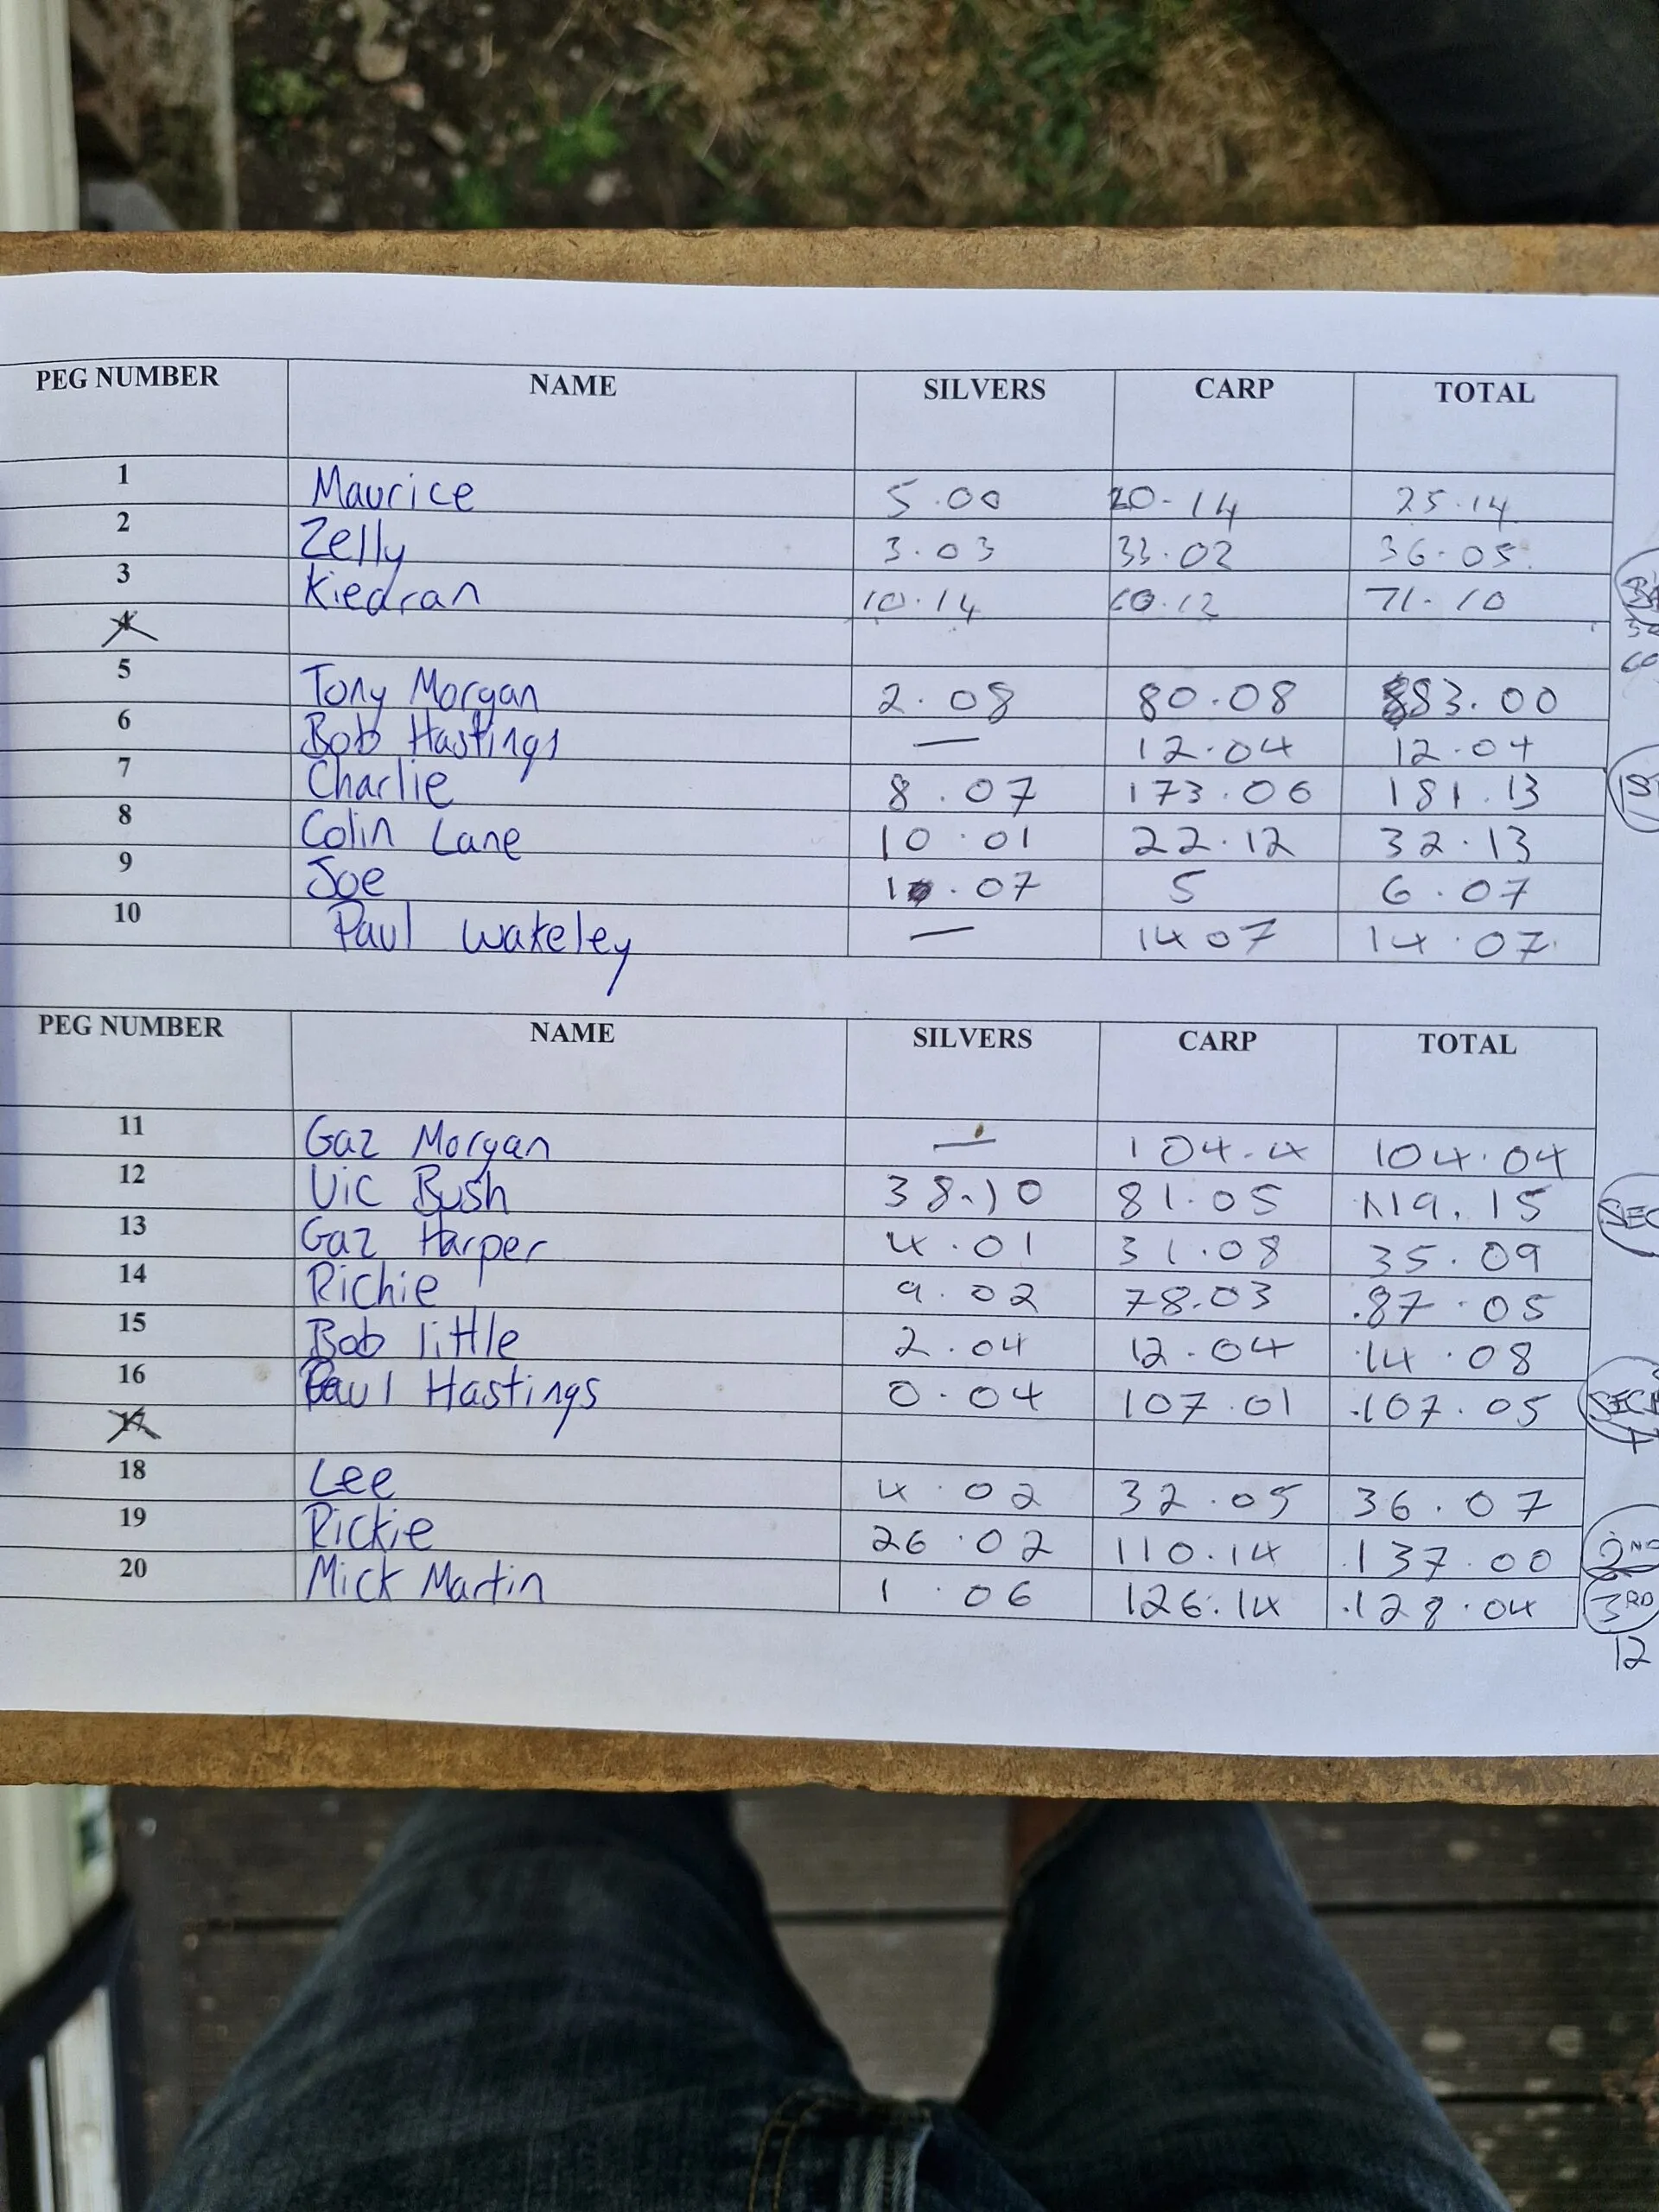 PEG NUMBER NAME SILVERS CARP TOTAL
1 Maurice 5.00 20-14 25.14
2 Zelly 3.03 33.02 36.05
3 Kiedran 10.14 60.12 71-10
4
5 Tony Morgan 2.08 80.08 83.00
6 Bob Hastings — 12.04 12.04
7 Charlie 8.07 173.06 181.13 1ST
8 Colin Lane 10.01 22.12 32.13
9 Joe 1.07 5 6.07
10 Paul Wakeley — 1407 14.07
PEG NUMBER NAME SILVERS CARP TOTAL
11 Gaz Morgan — 104.4 104.04
12 Vic Bush 38.10 81.05 119.15 SEC
13 Gaz Harper 4.01 31.08 35.09
14 Richie 9.02 78.03 87.05
15 Bob little 2.04 12.04 14.08
16 Paul Hastings 0.04 107.01 107.05 SEC
17
18 Lee 4.02 32.05 36.07
19 Rickie 26.02 110.14 137.00 2ND
20 Mick Martin 1.06 126.14 128.04 3RD
12